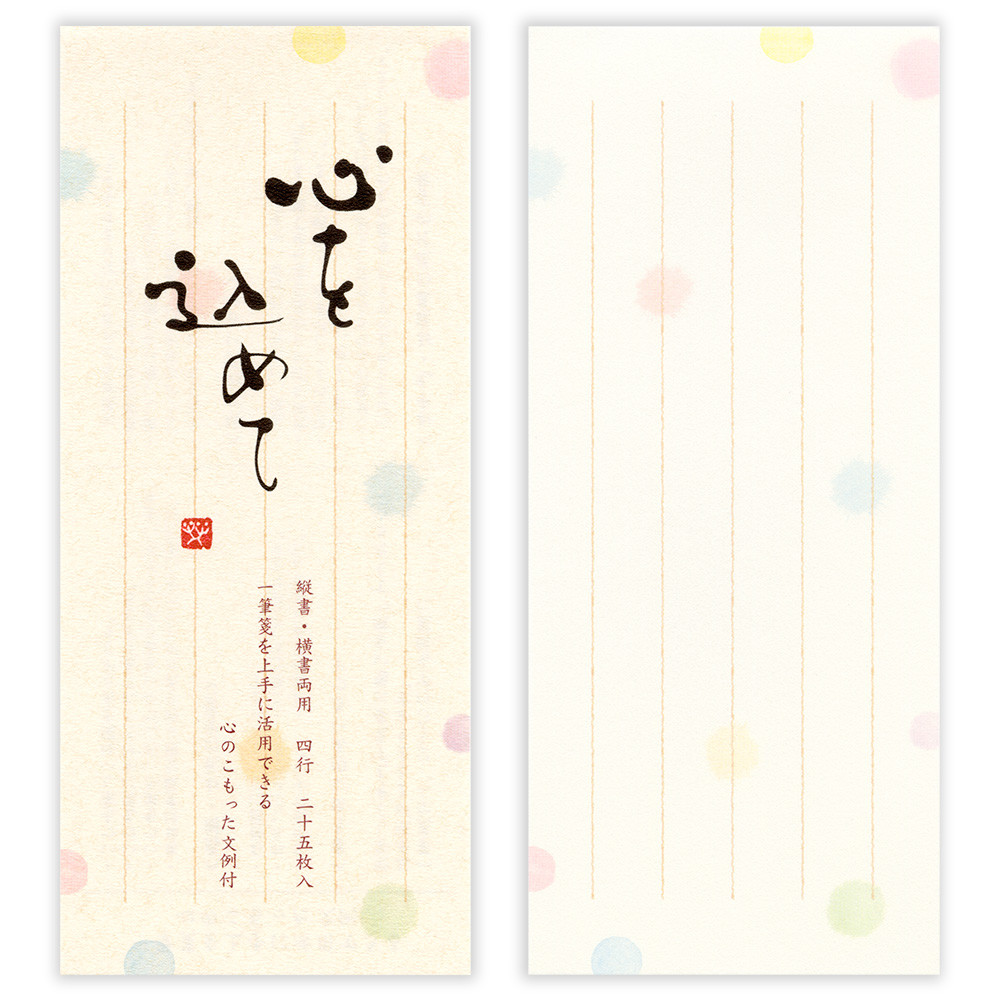 心を
込めて
縦書・横書両用 四行 二十五枚入
一筆箋を上手に活用できる
心のこもった文例付